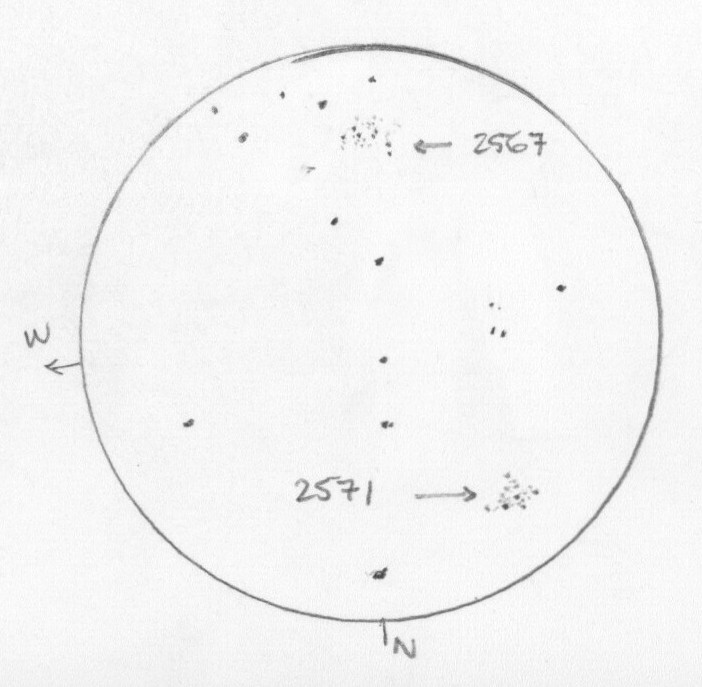 2567
W
2571
N